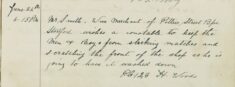 June 22nd
6.15 PM
Mr. Smith, Wine Merchant of Pitter Street
wishes a constable to keep the
Men & Boys from striking matches and
scratching the front of the shop as he is
going to have it washed down
PC 426 H.